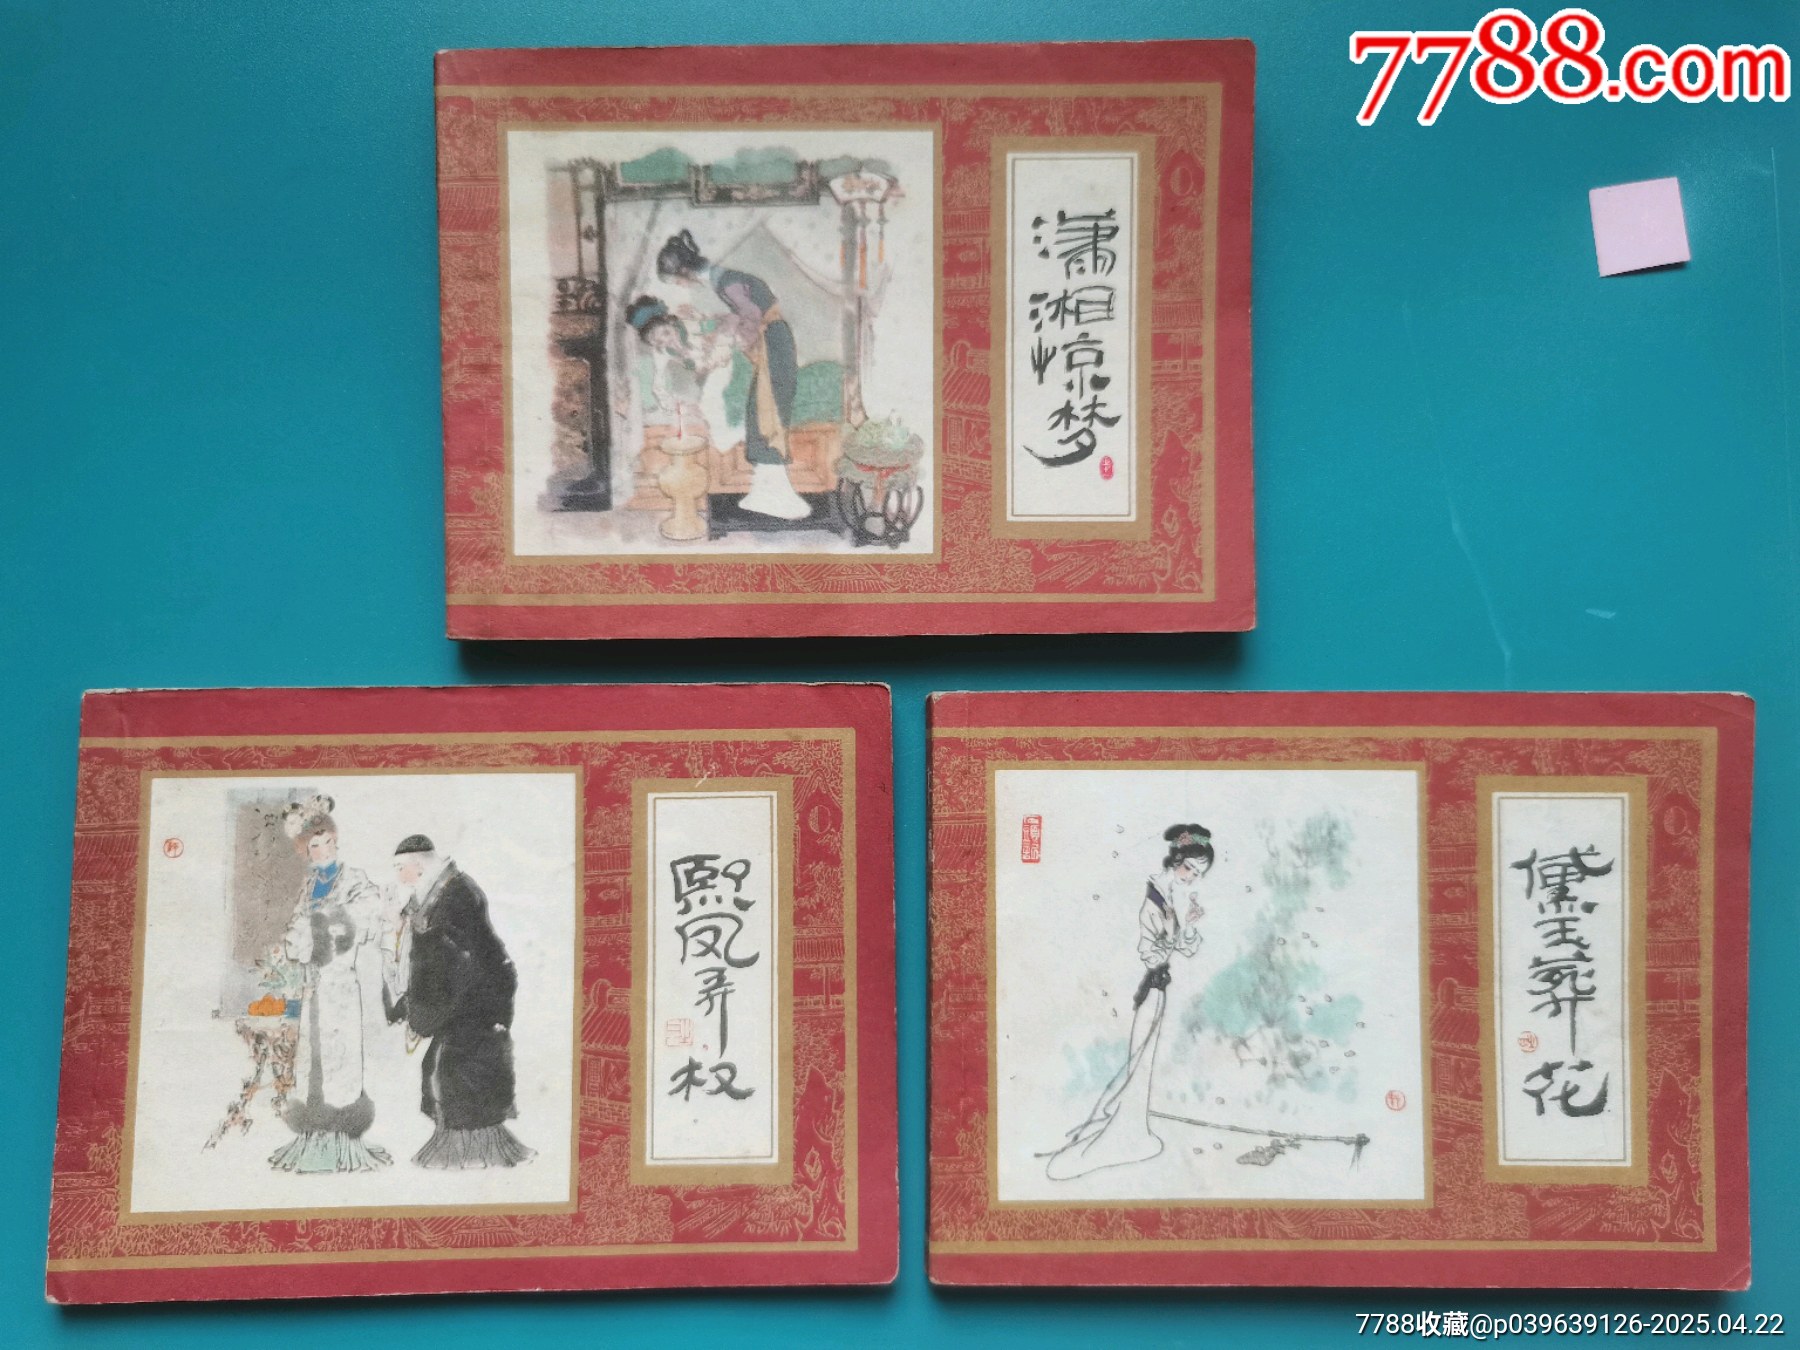 7788.com
潇湘惊梦
熙凤弄权
黛玉葬花
7788收藏@p039639126-2025.04.22